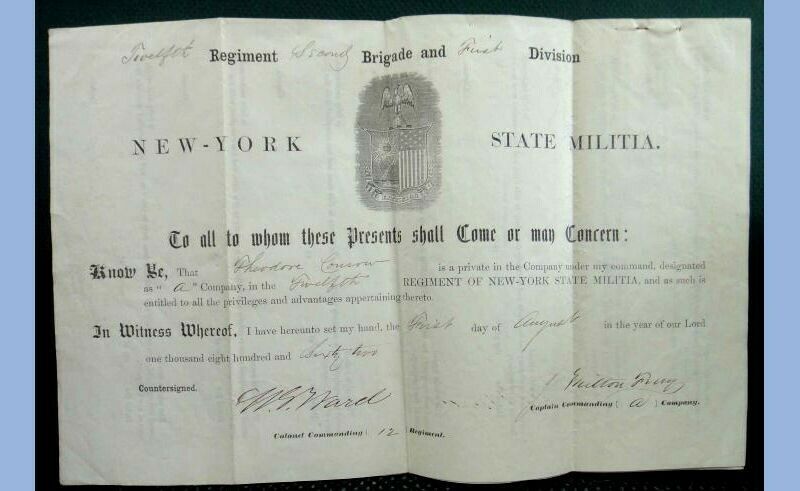 Twelfth Regiment Second Brigade and First Division
NEW-YORK STATE MILITIA.
To all to whom these Presents shall Come or may Concern:
Know Ye, That Theodore is a private in the Company under my command, designated
as "A" Company, in the Twelfth REGIMENT OF NEW-YORK STATE MILITIA, and as such is
entitled to all the privileges and advantages appertaining thereto.
In Witness Whereof, I have hereunto set my hand, the First day of August in the year of our Lord
one thousand eight hundred and Sixty two
Countersigned.
W. G. Ward
Milton
Captain Commanding ( A ) Company.
Colonel Commanding ( 12 ) Regiment.